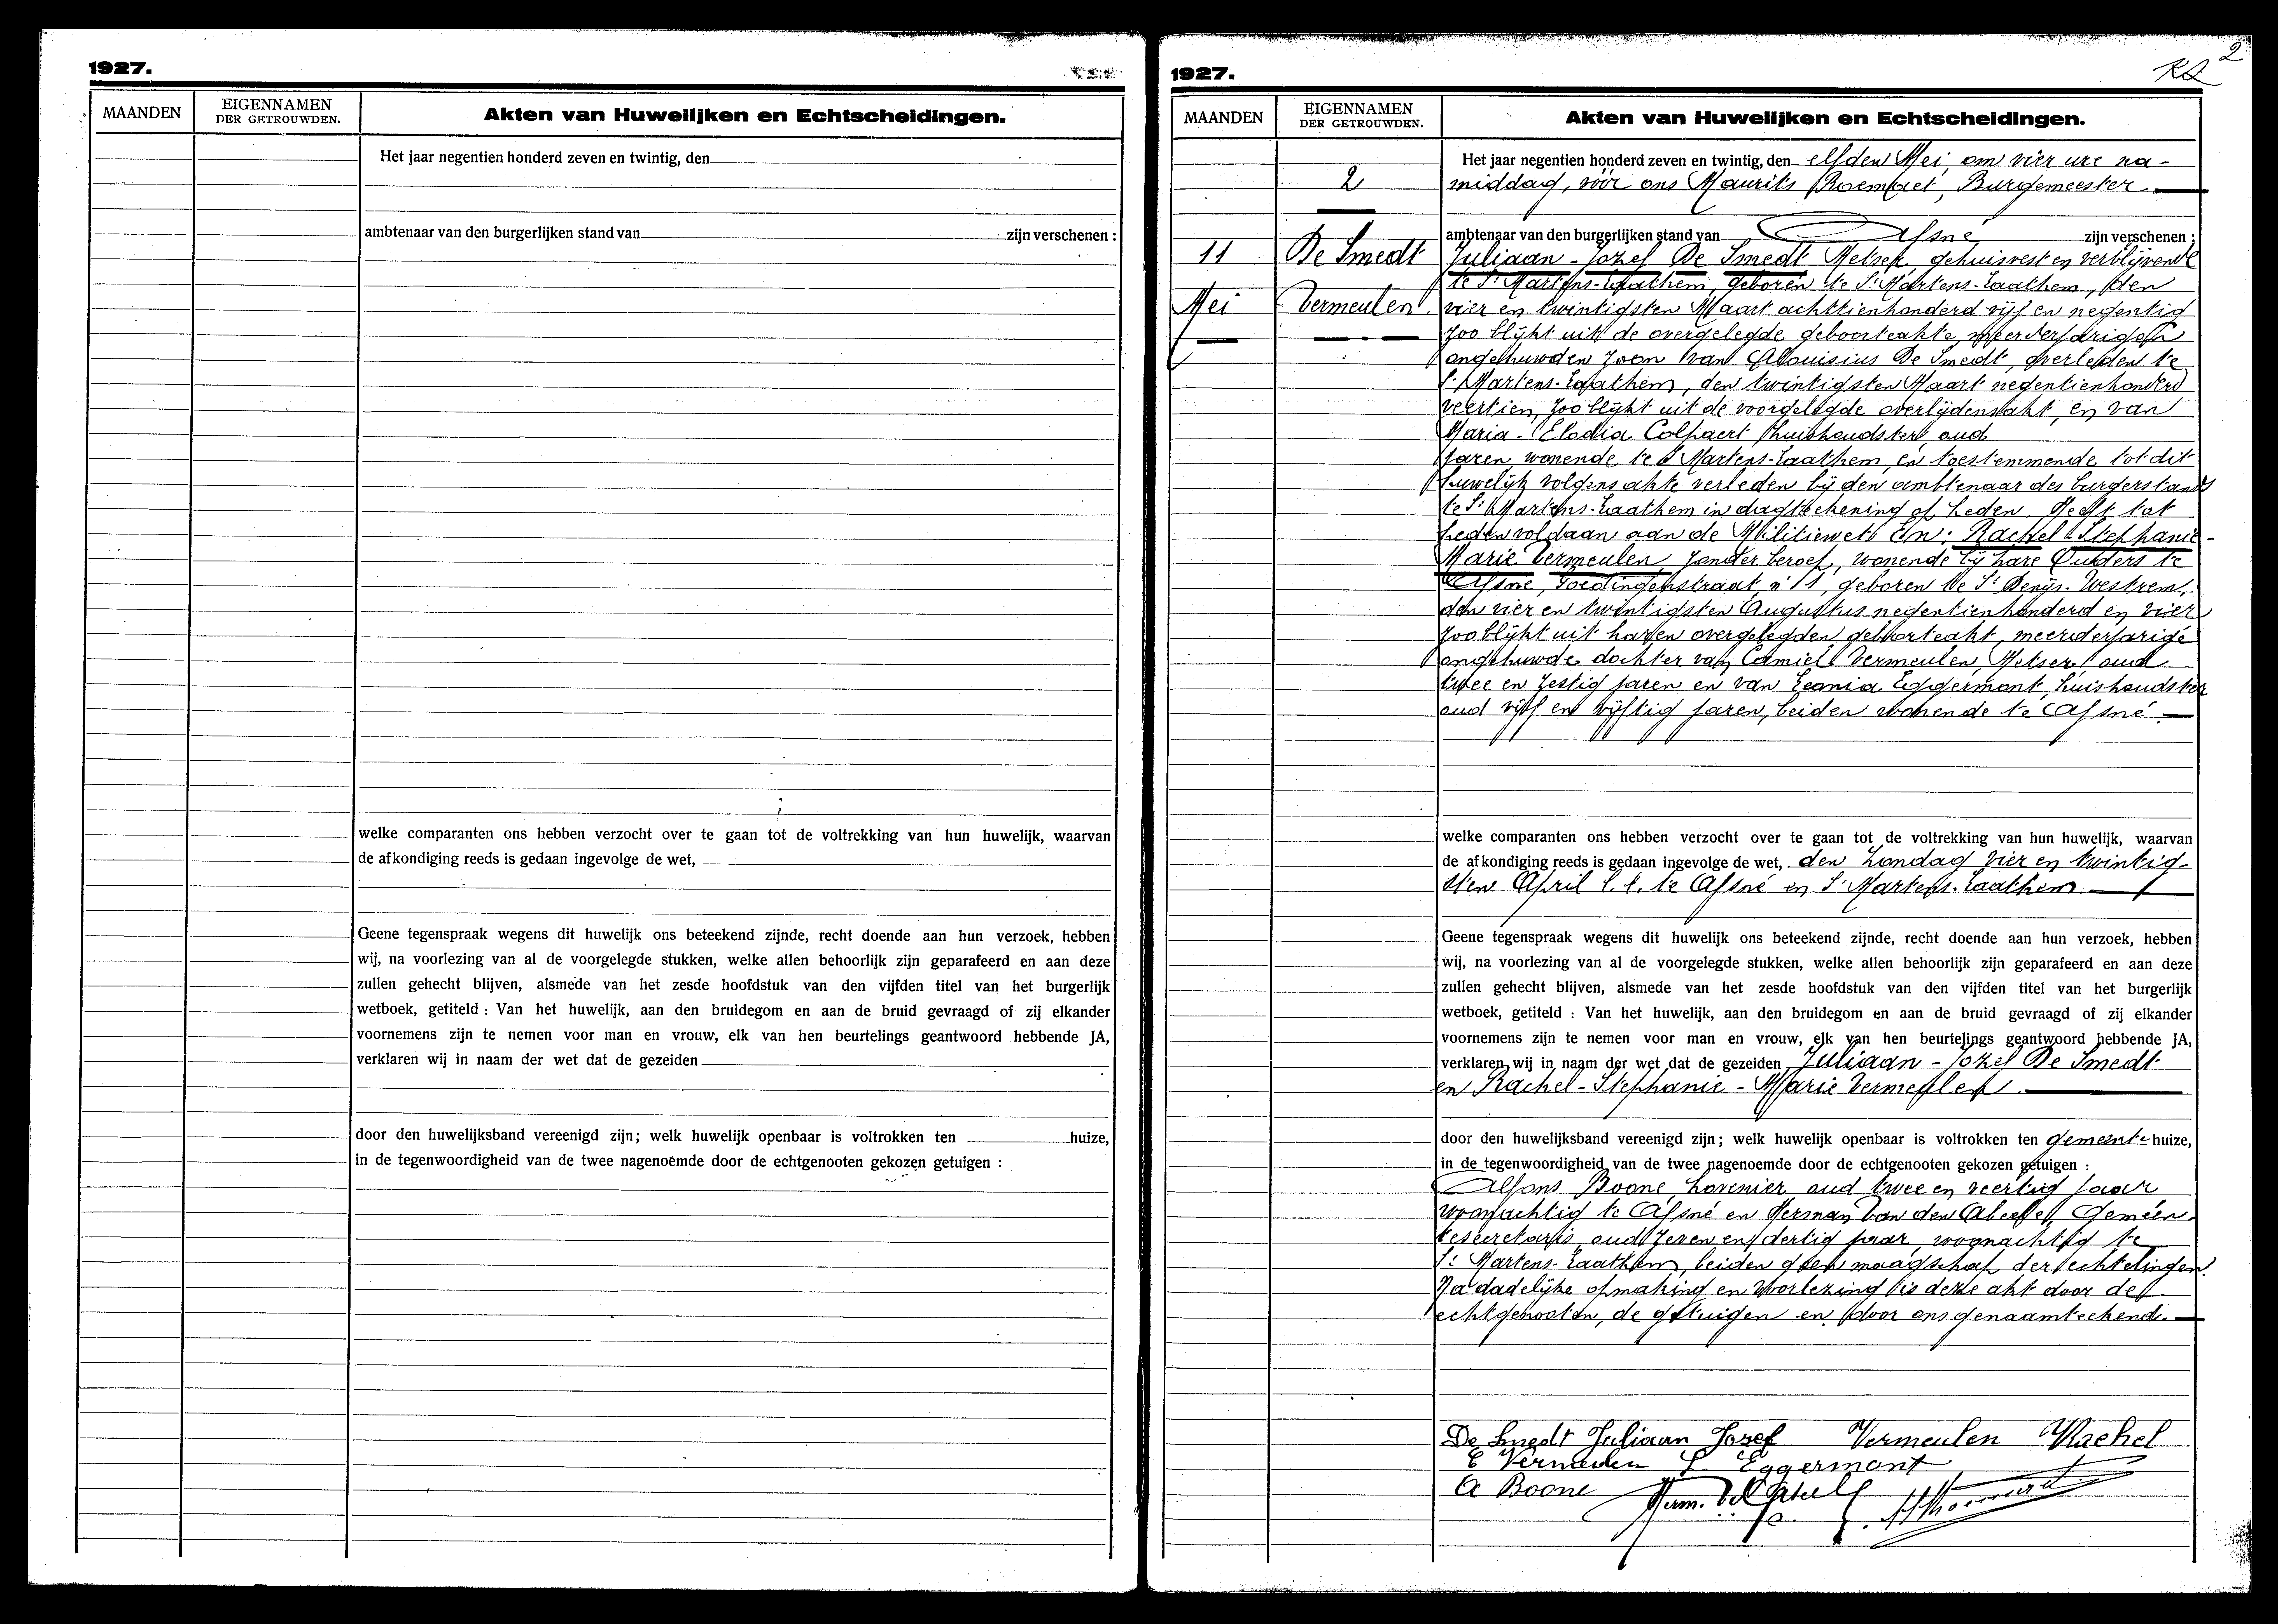 1927.
MAANDEN
EIGENNAMEN
DER GETROUWDEN.
Akten van Huwelijken en Echtscheidingen.
Het jaar negentien honderd zeven en twintig, den
ambtenaar van den burgerlijken stand van zijn verschenen :
welke comparanten ons hebben verzocht over te gaan tot de voltrekking van hun huwelijk, waarvan
de afkondiging reeds is gedaan ingevolge de wet,
Geene tegenspraak wegens dit huwelijk ons beteekend zijnde, recht doende aan hun verzoek, hebben
wij, na voorlezing van al de voorgelegde stukken, welke allen behoorlijk zijn geparafeerd en aan deze
zullen gehecht blijven, alsmede van het zesde hoofdstuk van den vijfden titel van het burgerlijk
wetboek, getiteld : Van het huwelijk, aan den bruidegom en aan de bruid gevraagd of zij elkander
voornemens zijn te nemen voor man en vrouw, elk van hen beurtelings geantwoord hebbende JA,
verklaren wij in naam der wet dat de gezeiden
door den huwelijksband vereenigd zijn; welk huwelijk openbaar is voltrokken ten huize,
in de tegenwoordigheid van de twee nagenoemde door de echtgenooten gekozen getuigen :
1927.
2
MAANDEN
EIGENNAMEN
DER GETROUWDEN.
Akten van Huwelijken en Echtscheidingen.
2
11
De Smedt
Mei
Vermeulen
Het jaar negentien honderd zeven en twintig, den elfden Mei, om vier ure na-
middag, vóór ons Maurits Burgemeester
ambtenaar van den burgerlijken stand van Afsné zijn verschenen :
Juliaan-Jozef De Smedt Metser, gehuisvest en verblijvende
te St Martens-Laathem, geboren te St Martens-Laathem, den
vier en twintigsten Maart achttienhonderd vijf en negentig
zoo blijkt uit de overgelegde geboorteakte meerderjarigen
ongehuwden zoon van Alouisius De Smedt, overleden te
St Martens-Laathem, den twintigsten Maart negentienhonderd
veertien, zoo blijkt uit de voorgelegde overlijdensakt, en van
Maria-Elodia Colpaert huishoudster, oud
jaren, wonende te St Martens-Laathem, en toestemmende tot dit
huwelijk volgens akte verleden bij den ambtenaar des burgerstands
te St Martens-Laathem in dagteekening of heden. Heeft tot
heden voldaan aan de Militiewet. En: Rachel-Stephanie-
Marie Vermeulen, zonder beroep, wonende bij hare Ouders te
Afsné, Goedingenstraat, n° 11, geboren te St Denijs-Westrem,
den vier en twintigsten Augustus negentienhonderd en vier
zoo blijkt uit haren overgelegden geboorteakt, meerderjarige
ongehuwde dochter van Camiel Vermeulen, Metser, oud
twee en zestig jaren en van Leonia Eggermont, huishoudster
oud vijf en vijftig jaren, beiden wonende te Afsné
welke comparanten ons hebben verzocht over te gaan tot de voltrekking van hun huwelijk, waarvan
de afkondiging reeds is gedaan ingevolge de wet, den Zondag vier en twintig-
sten April l.l. te Afsné en St Martens-Laathem.
Geene tegenspraak wegens dit huwelijk ons beteekend zijnde, recht doende aan hun verzoek, hebben
wij, na voorlezing van al de voorgelegde stukken, welke allen behoorlijk zijn geparafeerd en aan deze
zullen gehecht blijven, alsmede van het zesde hoofdstuk van den vijfden titel van het burgerlijk
wetboek, getiteld : Van het huwelijk, aan den bruidegom en aan de bruid gevraagd of zij elkander
voornemens zijn te nemen voor man en vrouw, elk van hen beurtelings geantwoord hebbende JA,
verklaren wij in naam der wet dat de gezeiden Juliaan-Jozef De Smedt
en Rachel-Stephanie-Marie Vermeulen.
door den huwelijksband vereenigd zijn; welk huwelijk openbaar is voltrokken ten gemeente huize,
in de tegenwoordigheid van de twee nagenoemde door de echtgenooten gekozen getuigen :
Alfons Boone, hovenier, oud twee en veertig jaar
woonachtig te Afsné en Herman Van den Abeele, Gemeen-
tesecretaris, oud zeven en dertig jaar, woonachtig te
St Martens-Laathem, beiden geen maagschap der echtelingen.
Na dadelijke opmaking en voorlezing is deze akt door de
echtgenooten, de getuigen en door ons genaamteekend.
De Smedt Juliaan Jozef Vermeulen Rachel
C Vermeulen L Eggermont
A Boone Herm. Vd Abeele